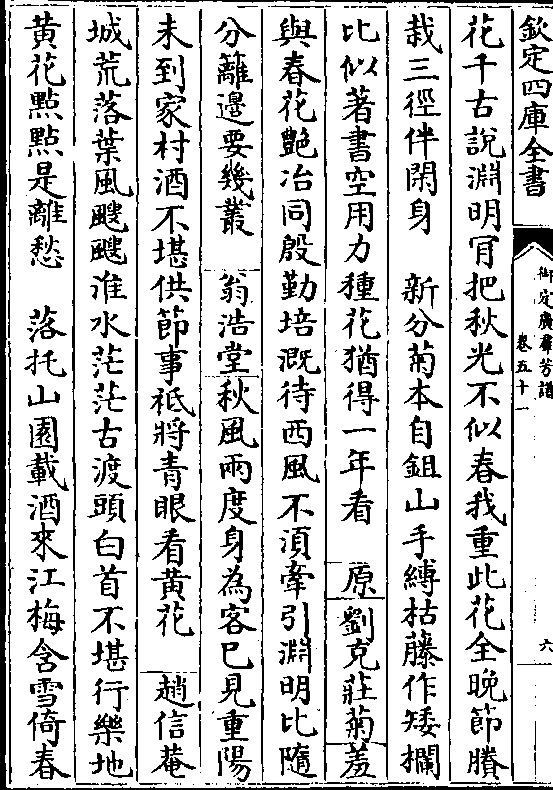 欽定四庫全書
御定廣羣芳譜
卷五十一
六
花千古說淵明肎把秋光不似春我重此花全晚節賸
栽三徑伴閑身　新分菊本自鉏山手縛枯藤作矮欄
比似著書空用力種花猶得一年看　原劉克莊菊羞
與春花艶冶同殷勤培溉待西風不須牽引淵明比隨
分籬邊要幾叢　翁浩堂秋風兩度身為客已見重陽
未到家村酒不堪供節事祗將青眼看黄花　趙信菴
城荒落葉風颼颼淮水茫茫古渡頭白首不堪行樂地
黄花點點是離愁　落托山園載酒來江梅含雪倚春